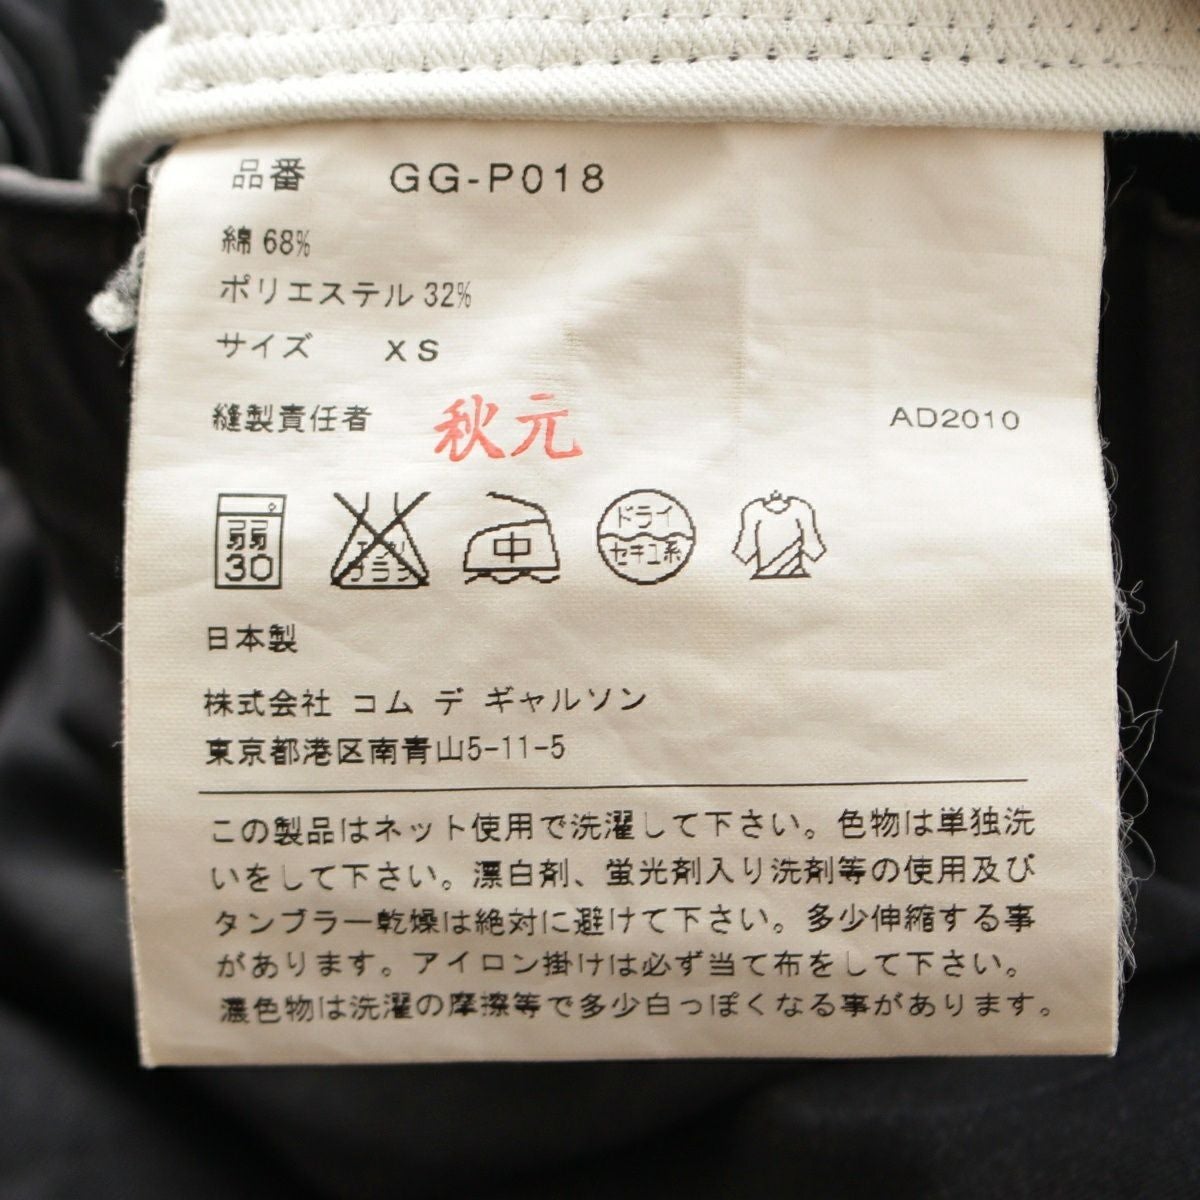 品番 GG-P018
綿 68%
ポリエステル 32%
サイズ XS
縫製責任者 秋元 AD2010
弱 30
エンソ サラシ
中
ドライ
セキユ系
日本製
株式会社 コム デ ギャルソン
東京都港区南青山5-11-5
この製品はネット使用で洗濯して下さい。色物は単独洗
いをして下さい。漂白剤、蛍光剤入り洗剤等の使用及び
タンブラー乾燥は絶対に避けて下さい。多少伸縮する事
があります。アイロン掛けは必ず当て布をして下さい。
濃色物は洗濯の摩擦等で多少白っぽくなる事があります。